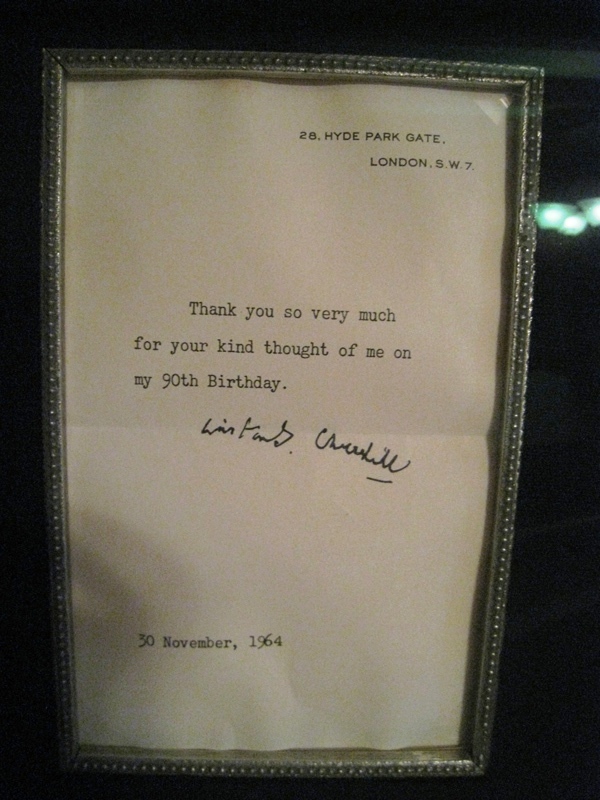 28, HYDE PARK GATE,
LONDON, S.W. 7.
Thank you so very much
for your kind thought of me on
my 90th Birthday.
Winston S. Churchill
30 November, 1964